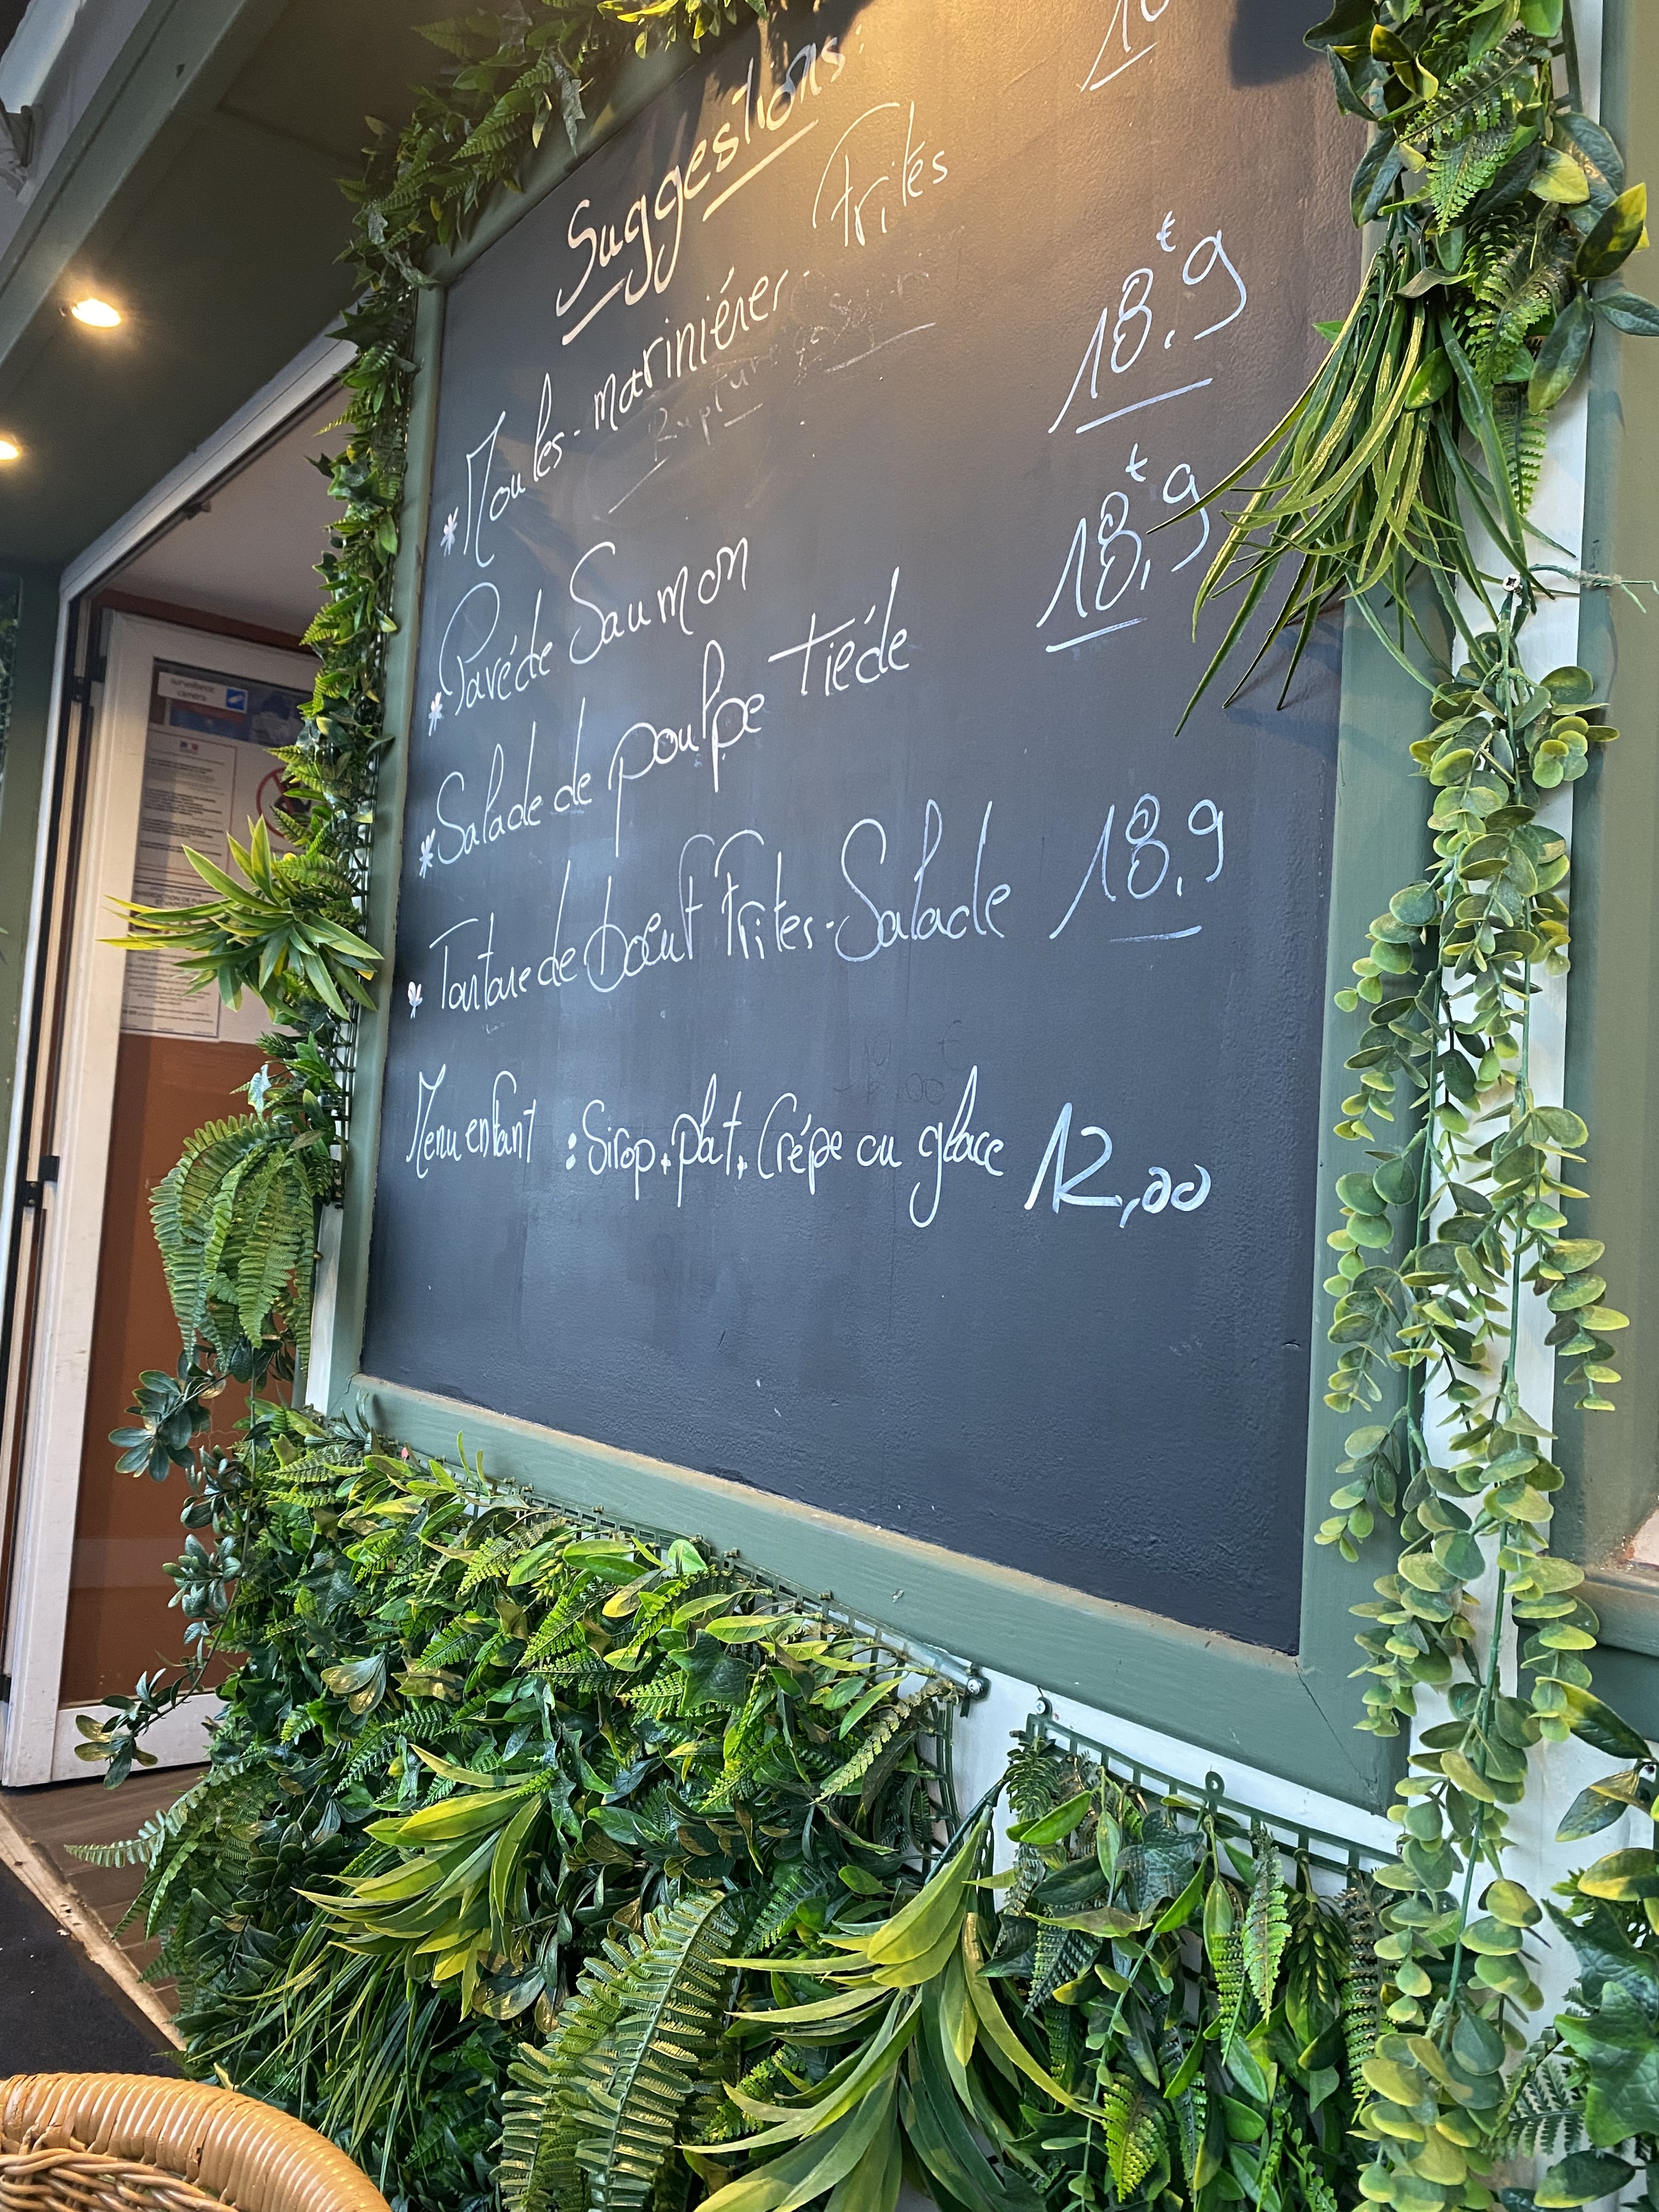 Suggestions:
16
* Moules-marinières-frites
Rupture
* Pavé de Saumon 18.€9
* Salade de poulpe tiéde 18,€9
* Tartare de boeuf frites-Salade 18.9
Menu enfant : Sirop+plat+Crêpe ou glace 12,00
surveillance
caméra